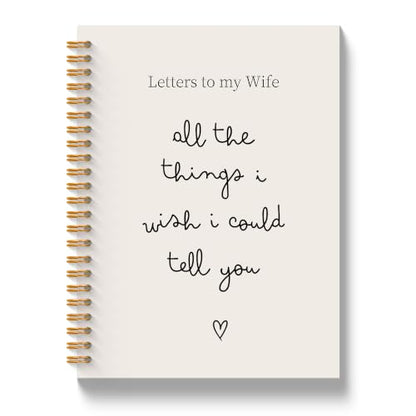 Letters to my Wife
all the
things i
wish i could
tell you